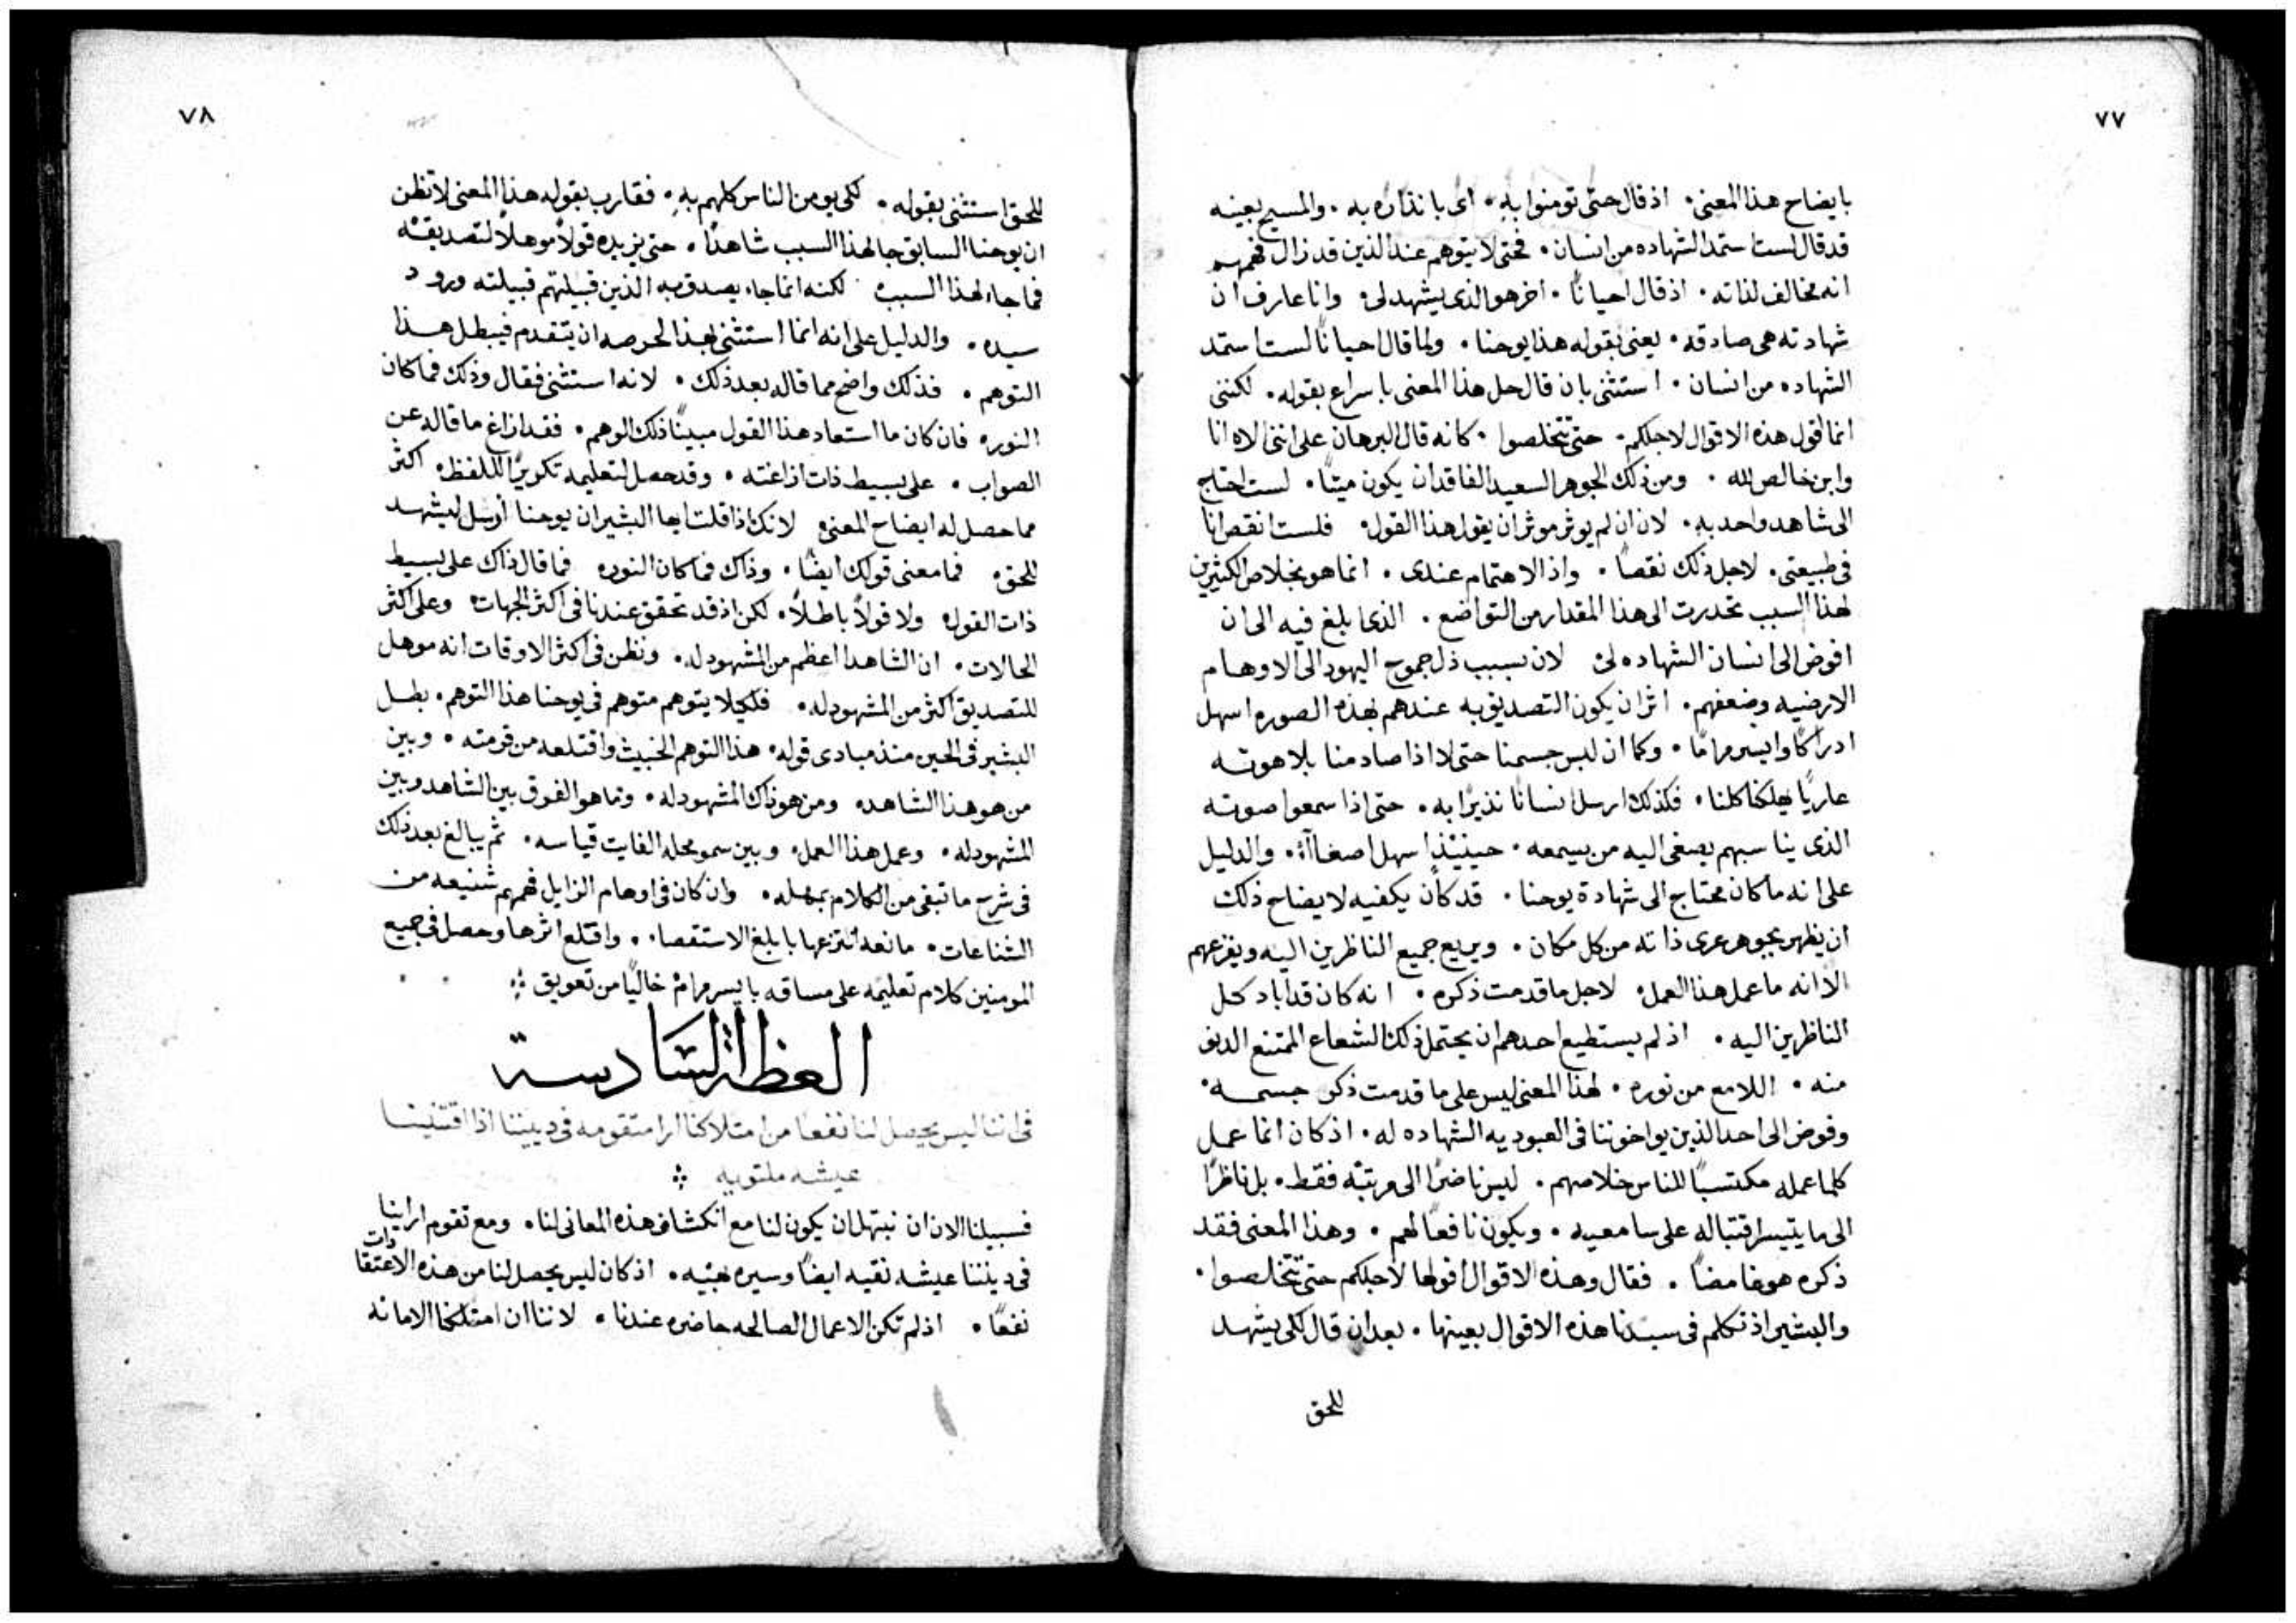 ٧٧
بايضاح هذا المعنى. اذ قال حتى تومنوا به. اى بانذاره به. والمسيح بعينه
قد قال لست استمد الشهاده من انسان. فحتى لا يتوهم عند الذين قد زال فهمهم
انه مخالف لذاته. اذ قال احيانًا. اخر هو الذى يشهد لى. وانا عارف ان
شهادته هى صادقه. يعنى بقوله هذا يوحنا. ولما قال احيانًا لست استمد
الشهاده من انسان. استثنى بان قال حل هذا المعنى باسراع بقوله. لكننى
انما اقول هذه الاقوال لاجلكم. حتى تتخلصوا. كانه قال البرهان على اننى الاه انا
وابن خالص لله. ومن ذلك الجوهر السعيد الفاقد ان يكون ميتًا. لست احتاج
الى شاهد واحد به. لان ان لم يوثر موثر ان يقول هذا القول. فلست انقص انا
فى طبيعتى. لاجل ذلك نقصًا. واذ الاهتمام عندى. انما هو بخلاص الكثيرين
لهذا السبب تحدرت الى هذا المقدار من التواضع. الذى ابلغ فيه الى ان
افوض الى انسان الشهاده لى. لان بسبب ذل جموح اليهود الى الاوهام
الارضيه وضعفهم. اثر ان يكون التصديق به عندهم بهذه الصوره اسهل
ادراكًا وايسر مرامًا. وكما ان لبس جسمنا حتى لا اذا صادمنا بلاهوته
عاريًا يهلكنا كلنا. فكذلك ارسل انسانًا نذيرًا به. حتى اذا سمعوا صوته
الذى يناسبهم يصغى اليه من يسمعه. حينيذٍ اسهل اصغاآءً. والدليل
على انه ما كان محتاج الى شهادة يوحنا. قد كان يكفيه لايضاح ذلك
ان يظهر بجوهر عرى ذاته من كل مكان. ويريع جميع الناظرين اليه ويفزعهم
الا انه ما عمل هذا العمل. لاجل ما قدمت ذكره. انه كان قد اباد كل
الناظرين اليه. اذ لم يستطيع احدهم ان يحتمل ذلك الشعاع الممتنع الدنو
منه. اللامع من نوره. لهذا المعنى لبس على ما قدمت ذكره جسمه.
وفوض الى احد الذين يواخوننا فى العبوديه الشهاده له. اذ كان انما عمل
كلما عمله مكتسبًا للناس خلاصهم. ليس ناضرًا الى مرتبته فقط. بل ناظرًا
الى ما يتيسر اقتباله على سامعيه. ويكون نافعًا لهم. وهذا المعنى فقد
ذكره هو غامضًا. فقال وهذه الاقوال اقولها لاجلكم حتى تتخلصوا.
والبشير اذ تكلم فى سيدنا هذه الاقوال بعينها. بعد ان قال لكى يشهد
للحق
٧٨
للحق استثنى بقوله. لكى يومن الناس كلهم به. فقارب بقوله هذا المعنى لا تظن
ان يوحنا السابق جا لهذا السبب شاهدًا. حتى يزيده قولاً موهلاً لتصديقه
فما جاء لهذا السبب. لكنه انما جاء يصدق به الذين قبيلتهم قبيلته ورود
سيده. والدليل على انه انما استثنى بهذا لحرصه ان يتقدم فيبطل هذا
التوهم. فذلك واضح مما قاله بعد ذلك. لانه استثنى فقال وذلك فما كان
النور. فان كان ما استعاد هذا القول مبينًا ذلك الوهم. فقد ازاغ ما قاله عن
الصواب. على بسيط ذات ازاغته. وقد حصل لتعليمه تكريرًا للفظ. اكثر
مما حصل له ايضاح المعنى لانك اذا قلت ايها البشير ان يوحنا أرسل ليشهد
للحق. فما معنى قولك ايضًا. وذاك فما كان النور. فما قال ذاك على بسيط
ذات القول. ولا قولاً باطلاً. لكن اذ قد تحقق عندنا فى اكثر الجهات. وعلى اكثر
الحالات. ان الشاهد اعظم من المشهود له. ونظن فى اكثر الاوقات انه موهل
للتصديق اكثر من المشهود له. فلكيلا يتوهم متوهم فى يوحنا هذا التوهم. بطل
البشير فى الحين منذ مبادى قوله. هذا التوهم الخبيث واقتلعه من قرمته. وبين
من هو هذا الشاهد. ومن هو ذاك المشهود له. وما هو الفرق بين الشاهد وبين
المشهود له. وعمل هذا العمل. وبين سمو محله الفايت قياسه. ثم يبالغ بعد ذلك
فى شرح ما تبقى من الكلام بمهله. وان كان فى اوهام الزايل فهمهم شنيعه من
الشناعات. مانعه انتزعها بابلغ الاستقصا. واقتلع اثرها وحصل فى جميع
المومنين كلام تعليمه على مساقه بايسر مرام خاليًا من تعويق
العظة السادسة
فى اننا ليس يحصل لنا نفعًا من امتلاكنا ارا متقومه فى ديننا اذا اقتنينا
عيشه ملتويه
فسبيلنا الان ان نبتهل ان يكون لنا مع انكشاف هذه المعانى لنا. ومع تقوم اراينا
فى ديننا عيشه نقيه ايضًا وسيره بهيه. اذ كان ليس يحصل لنا من هذه الاعتقادات
نفعًا. اذ لم تكن الاعمال الصالحه حاضره عندنا. لاننا ان امتلكنا الامانه